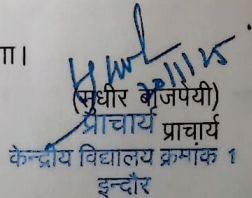 गा।
20/11/25
(सुधीर बाजपेयी)
प्राचार्य प्राचार्य
केन्द्रीय विद्यालय क्रमांक 1
इन्दौर